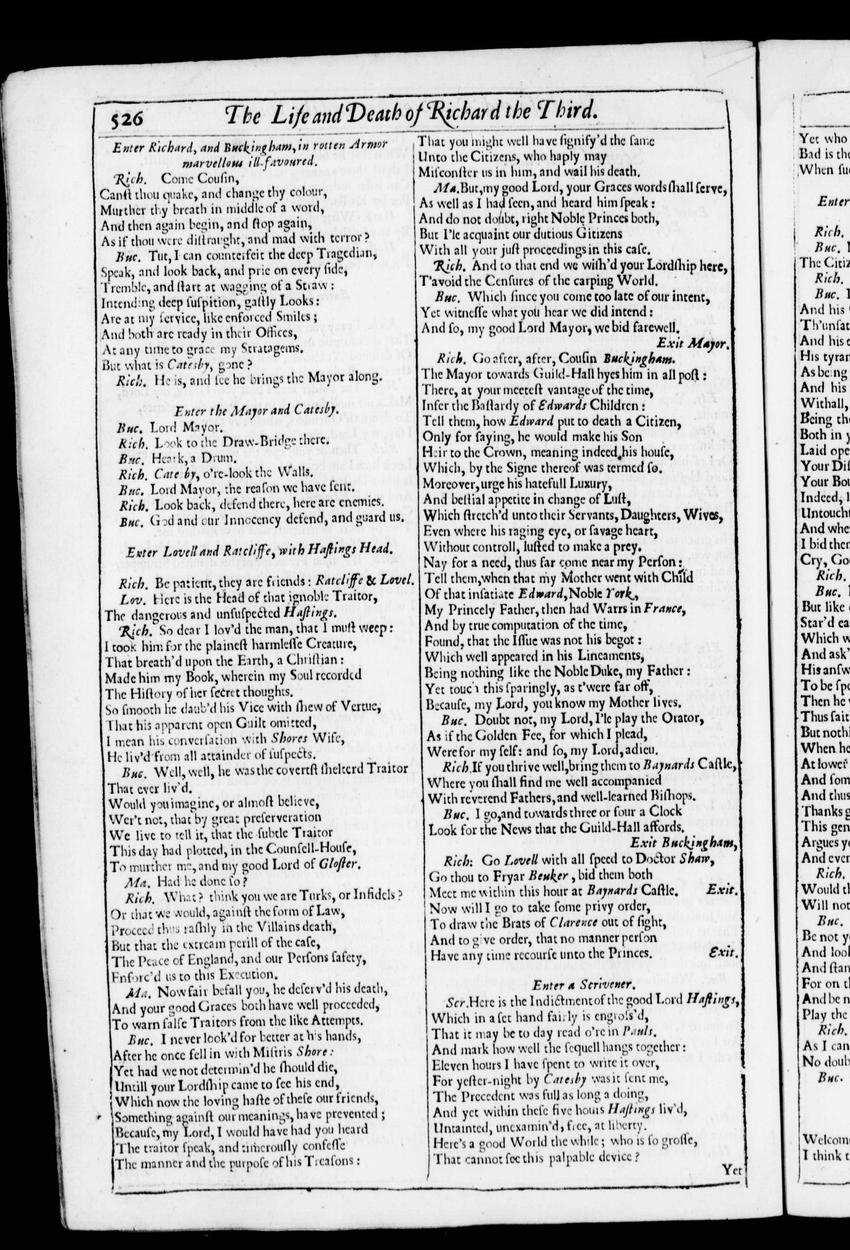 526 The Life and Death of Richard the Third.
Enter Richard, and Buckingham, in rotten Armor
marvellous ill-favoured.
Rich. Come Cousin,
Canst thou quake, and change thy colour,
Murther thy breath in middle of a word,
And then again begin, and stop again,
As if thou were distraught, and mad with terror?
Buc. Tut, I can counterfeit the deep Tragedian,
Speak, and look back, and prie on every side,
Tremble, and start at wagging of a Straw:
Intending deep suspition, gastly Looks:
Are at my service, like enforced Smiles;
And both are ready in their Offices,
At any time to grace my Stratagems.
But what is Catesby, gone?
Rich. He is, and see he brings the Mayor along.
Enter the Mayor and Catesby.
Buc. Lord Mayor.
Rich. Look to the Draw-Bridge there.
Buc. Heark, a Drum.
Rich. Catesby, o're-look the Walls.
Buc. Lord Mayor, the reason we have sent.
Rich. Look back, defend there, here are enemies.
Buc. God and our Innocency defend, and guard us.
Enter Lovell and Ratcliffe, with Hastings Head.
Rich. Be patient, they are friends: Ratcliffe & Lovel.
Lov. Here is the Head of that ignoble Traitor,
The dangerous and unsuspected Hastings.
Rich. So dear I lov'd the man, that I must weep:
I took him for the plainest harmlesse Creature,
That breath'd upon the Earth, a Christian:
Made him my Book, wherein my Soul recorded
The History of her secret thoughts.
So smooth he daub'd his Vice with shew of Vertue,
That his apparent open Guilt omitted,
I mean his conversation with Shores Wife,
He liv'd from all attainder of suspects.
Buc. Well, well, he was the covertst shelterd Traitor
That ever liv'd.
Would you imagine, or almost believe,
Wer't not, that by great preserveration
We live to tell it, that the subtle Traitor
This day had plotted, in the Counsell-House,
To murther me, and my good Lord of Gloster.
Ma. Had he done so?
Rich. What? think you we are Turks, or Infidels?
Or that we would, against the form of Law,
Proceed thus rashly in the Villains death,
But that the extream perill of the case,
The Peace of England, and our Persons safety,
Enforc'd us to this Execution.
Ma. Now fair befall you, he deserv'd his death,
And your good Graces both have well proceeded,
To warn false Traitors from the like Attempts.
Buc. I never look'd for better at his hands,
After he once fell in with Mistris Shore:
Yet had we not determin'd he should die,
Untill your Lordship came to see his end,
Which now the loving haste of these our friends,
Something against our meanings, have prevented;
Because, my Lord, I would have had you heard
The traitor speak, and timerously confesse
The manner and the purpose of his Treasons:
That you might well have signify'd the same
Unto the Citizens, who haply may
Misconster us in him, and wail his death.
Ma. But, my good Lord, your Graces words shall serve,
As well as I had seen, and heard him speak:
And do not doubt, right Noble Princes both,
But I'le acquaint our dutious Gitizens
With all your just proceedings in this case.
Rich. And to that end we wish'd your Lordship here,
T'avoid the Censures of the carping World.
Buc. Which since you come too late of our intent,
Yet witnesse what you hear we did intend:
And so, my good Lord Mayor, we bid farewell.
Exit Mayor.
Rich. Go after, after, Cousin Buckingham.
The Mayor towards Guild-Hall hyes him in all post:
There, at your meetest vantage of the time,
Infer the Bastardy of Edwards Children:
Tell them, how Edward put to death a Citizen,
Only for saying, he would make his Son
Heir to the Crown, meaning indeed, his house,
Which, by the Signe thereof was termed so.
Moreover, urge his hatefull Luxury,
And bestial appetite in change of Lust,
Which stretch'd unto their Servants, Daughters, Wives,
Even where his raging eye, or savage heart,
Without controll, lusted to make a prey.
Nay for a need, thus far come near my Person:
Tell them, when that my Mother went with Child
Of that insatiate Edward, Noble York,
My Princely Father, then had Warrs in France,
And by true computation of the time,
Found, that the Issue was not his begot:
Which well appeared in his Lineaments,
Being nothing like the Noble Duke, my Father:
Yet touch this sparingly, as t'were far off,
Because, my Lord, you know my Mother lives.
Buc. Doubt not, my Lord, I'le play the Orator,
As if the Golden Fee, for which I plead,
Were for my self: and so, my Lord, adieu.
Rich. If you thrive well, bring them to Baynards Castle,
Where you shall find me well accompanied
With reverend Fathers, and well-learned Bishops.
Buc. I go, and towards three or four a Clock
Look for the News that the Guild-Hall affords.
Exit Buckingham,
Rich: Go Lovell with all speed to Doctor Shaw,
Go thou to Fryar Beuker, bid them both
Meet me within this hour at Baynards Castle. Exit.
Now will I go to take some privy order,
To draw the Brats of Clarence out of sight,
And to give order, that no manner person
Have any time recourse unto the Princes. Exit.
Enter a Scrivener.
Scr. Here is the Indictment of the good Lord Hastings,
Which in a set hand fairly is engross'd,
That it may be to day read o're in Pauls.
And mark how well the sequell hangs together:
Eleven hours I have spent to write it over,
For yester-night by Catesby was it sent me,
The Precedent was full as long a doing,
And yet within these five hours Hastings liv'd,
Untainted, unexamin'd, free, at liberty.
Here's a good World the while; who is so grosse,
That cannot see this palpable device?
Yet
Yet who
Bad is the
When
Enter
Rich.
Buc.
The
Rich.
Buc.
And his
And his
His
As being
And his
Withall,
Being
Both in
Laid
Your
Your
Indeed,
And
I bid
Cry,
Rich.
Buc.
But like
Star'd
Which
And ask'
His
To be
Then he
Thus
But
When he
At lower
And
And thus
Thanks
This
Argues
And ever
Rich.
Would
Will not
Buc.
Be not
And look
And
For on
And be
Play the
Rich.
As I can
No
Buc.
I think